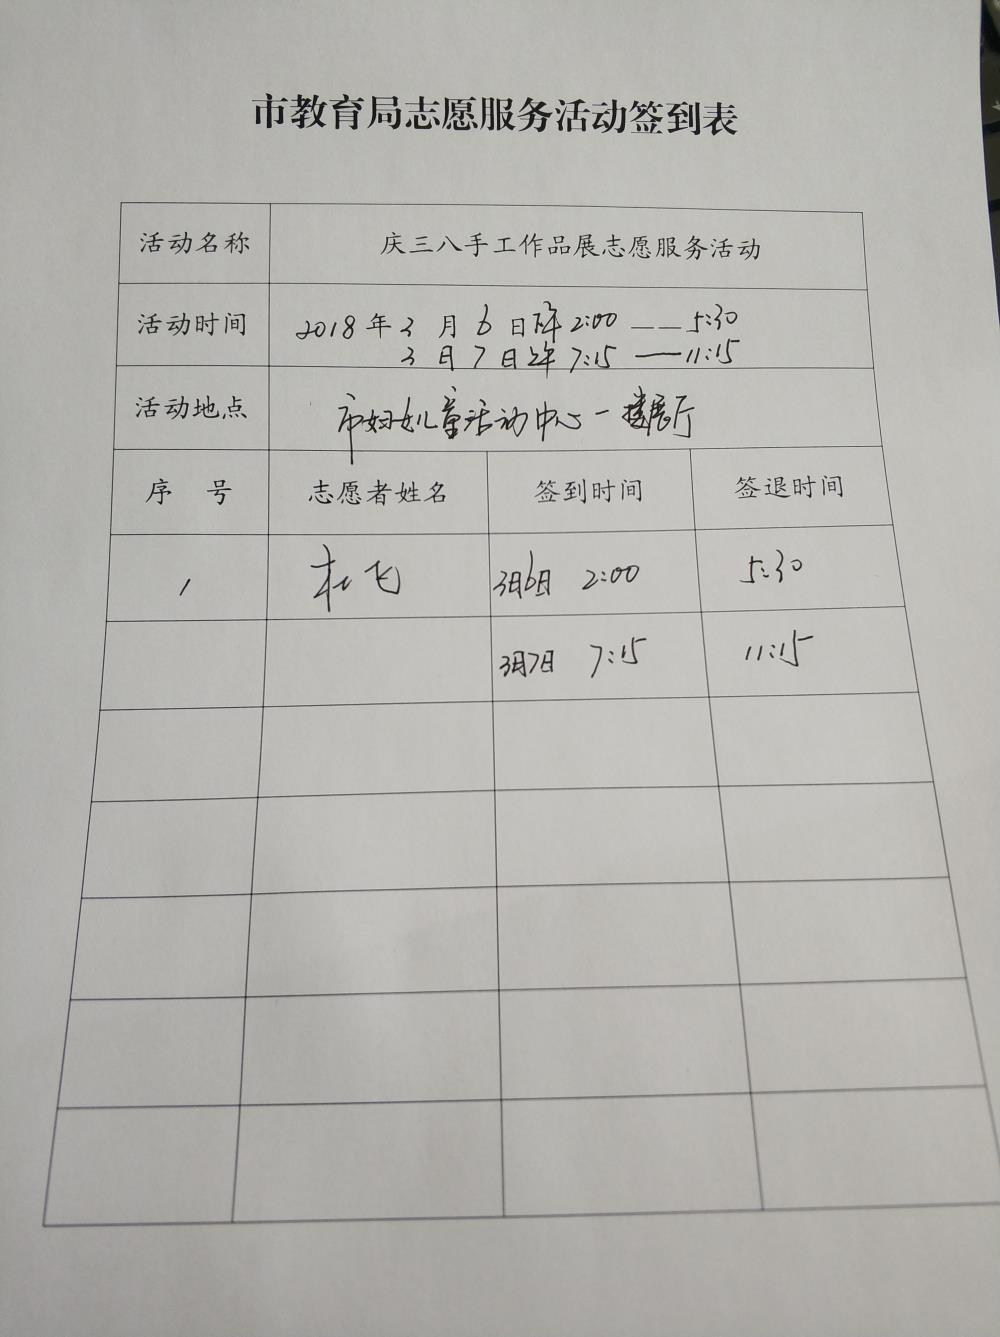 市教育局志愿服务活动签到表
活动名称 庆三八手工作品展志愿服务活动
活动时间 2018年3月6日下午2:00——5:30
3月7日上午7:15——11:15
活动地点 市妇女儿童活动中心一楼展厅
序 号 志愿者姓名 签到时间 签退时间
1 杜飞 3月6日 2:00 5:30
3月7日 7:15 11:15